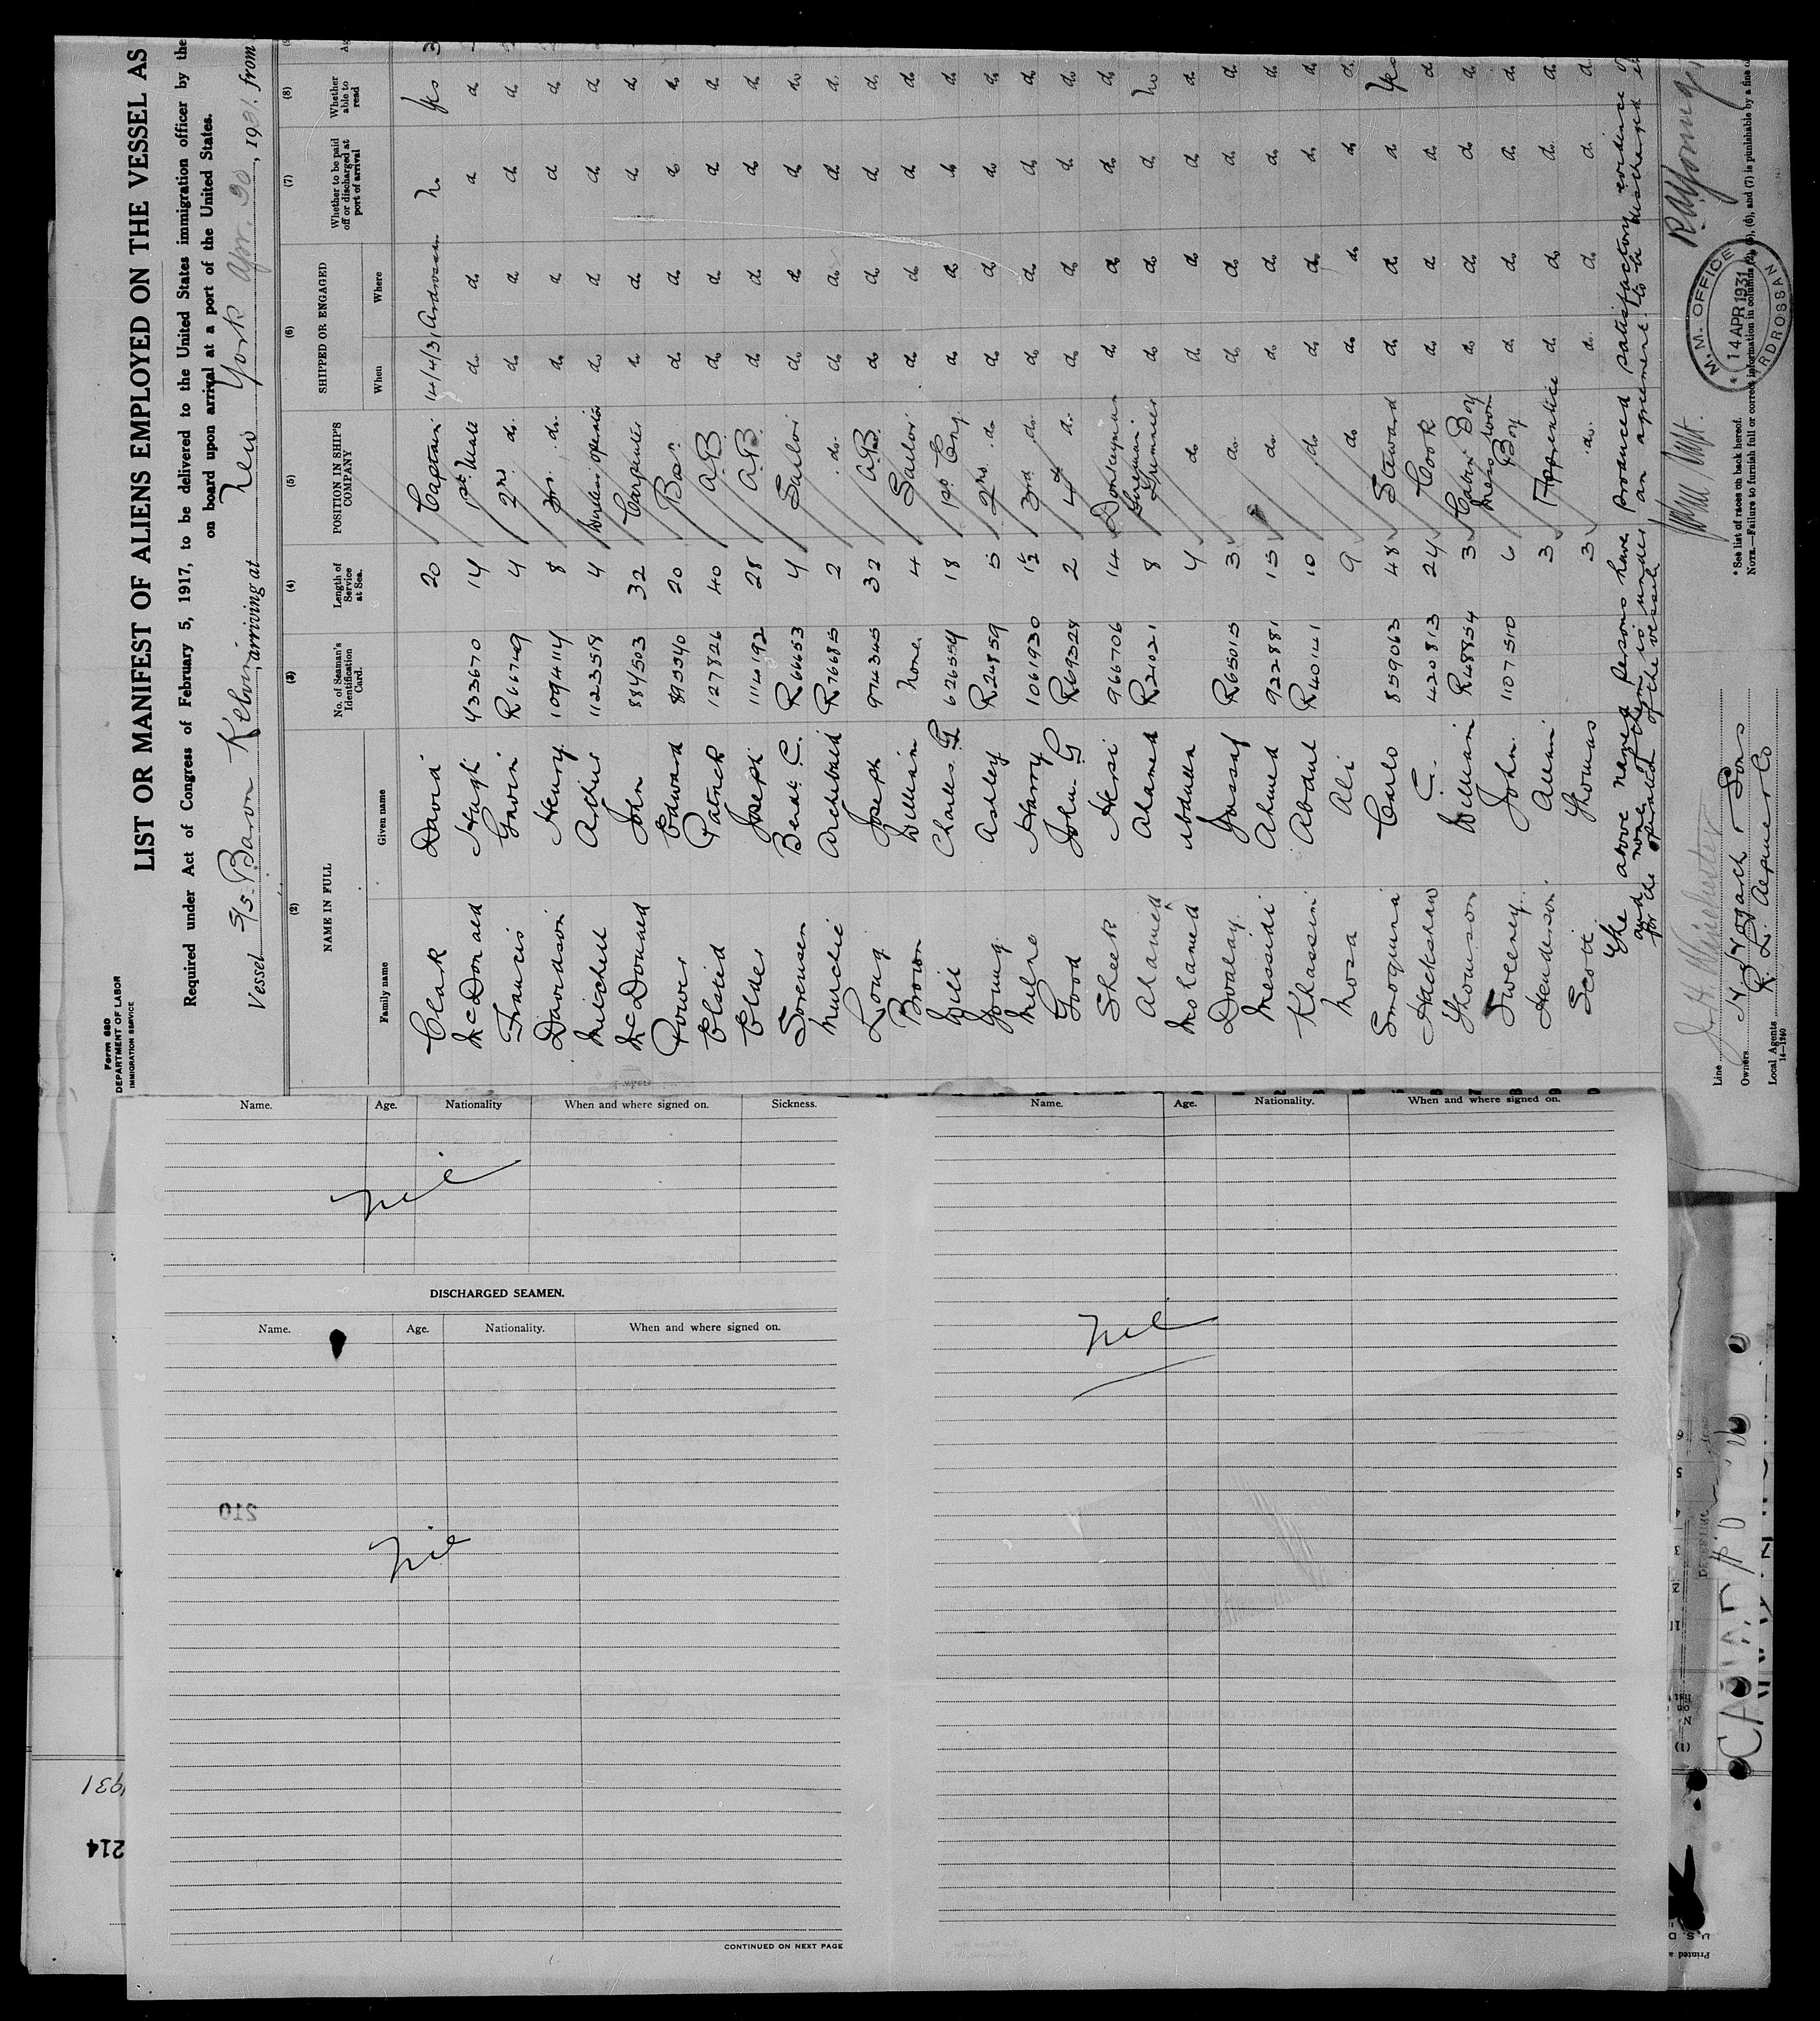 Form 680
DEPARTMENT OF LABOR
IMMIGRATION SERVICE
LIST OR MANIFEST OF ALIENS EMPLOYED ON THE VESSEL AS
Required under Act of Congress of February 5, 1917, to be delivered to the United States immigration officer by the
on board upon arrival at a port of the United States.
Vessel S/S Baron Kelvin, arriving at New York Apr. 30, 1931, from
(2) (3) (4) (5) (6) (7) (8)
NAME IN FULL No. of Seaman's Identification Card. Length of Service at Sea. POSITION IN SHIP'S COMPANY SHIPPED OR ENGAGED Whether to be paid off or discharged at port of arrival Whether able to read
Family name Given name When Where
Clark David 20 Captain 14/4/31 Ardrossan No Yes 3
McDonald Hugh 433670 14 1st Mate do do do do
Francis Gavin R66749 4 2nd do. do do do do
Davidson Henry 1094114 8 3rd. do. do do do do
Mitchell Arthur 1123518 4 Wireless operator do do do do
McDonald John 884503 32 Carpenter do do do do
Power Edward 895540 20 Bosn do do do do
Elstid Patrick 127826 40 A.B do do do do
Elder Joseph 1114192 28 A.B. do do do do
Sorensen Bendt C. R66653 4 Sailor do do do do
Murchie Archibald R76685 2 do. do do do do
Long Joseph 974345 32 A.B. do do do do
Brown William None 4 Sailor do do do do
Gill Charles G 626554 18 1st Eng. do do do do
Young Ashley R24859 5 2nd. do do do do do
Milne Harry 1061930 1½ 3rd do. do do do do
Good John G R69328 2 4th do. do do do do
Sheek Hersi 966706 14 Donkeyman do do do do
Ahamed Ahamed R21021 8 Fireman Trimmer do do do No
Mohamed Abdulla 4 do do do do do
Doalay Yussuf R65015 3 do. do do do do
Messidi Ahmed 922881 15 do do do do do
Khassim Abdul R40141 10 do. do do do do
Mosa Ali 9 do do do do do
Smoquina Carlo 859063 48 Steward do do do Yes
Hackshaw C. 420813 24 Cook do do do do
Thomson William R48854 3 Cabin Boy do do do do
Sweeney John 1107510 6 Mess Room Boy do do do do
Henderson Allan 3 Apprentice do do do do
Scott Thomas 3 do. do. do do do
The above named persons have produced satisfactory evidence
and none of them is under an agreement to be discharged
for the operation of the vessel.
Line
Owners H Hogarth & Sons
Local Agents
14—1940
* See list of races on back hereof.
NOTE.—Failure to furnish full or correct information in columns (2), (5), (6), and (7) is punishable by a fine o
M. M. OFFICE
14 APR 1931
ARDROSSAN
Name. Age. Nationality When and where signed on. Sickness.
Nil
DISCHARGED SEAMEN.
Name. Age. Nationality. When and where signed on.
210
Nil
CONTINUED ON NEXT PAGE
Name. Age. Nationality. When and where signed on.
Nil
214